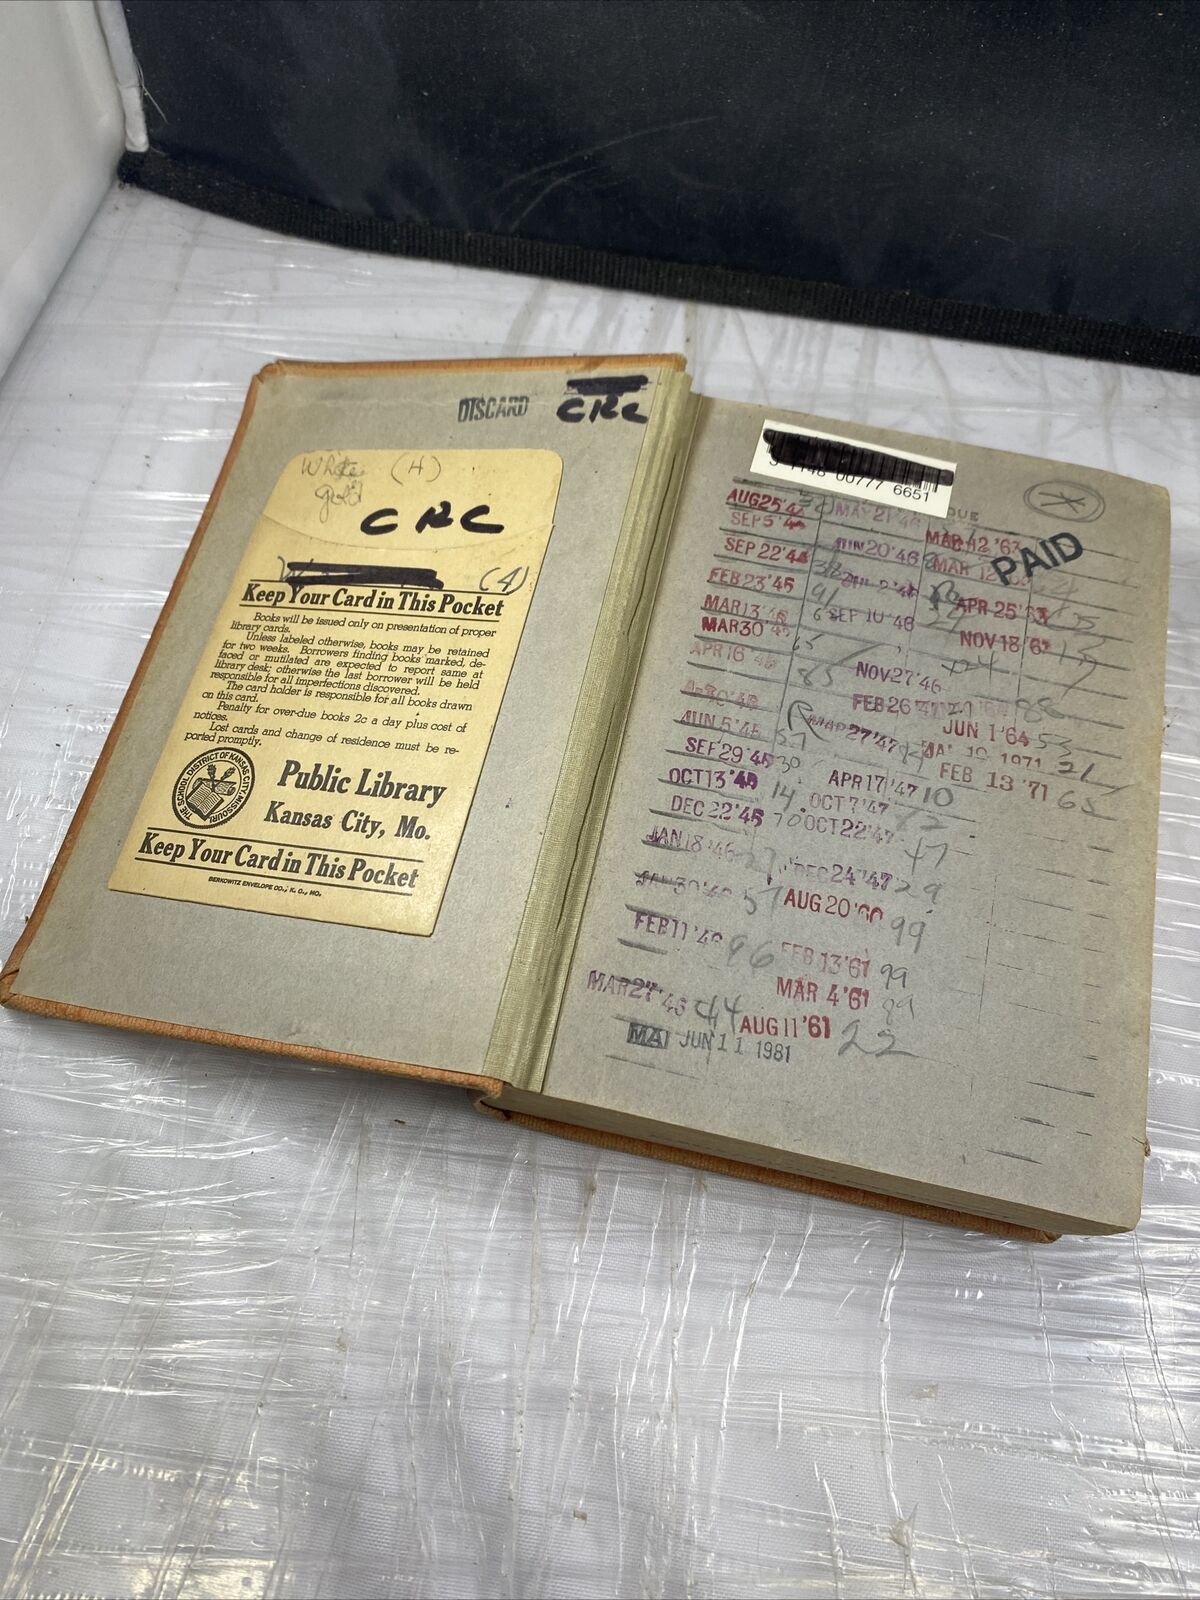 DISCARD
CRC
White (4)
gold
CRC
(4)
Keep Your Card in This Pocket
Books will be issued only on presentation of proper
library cards.
Unless labeled otherwise, books may be retained
for two weeks. Borrowers finding books marked, de-
faced or mutilated are expected to report same at
library desk; otherwise the last borrower will be held
responsible for all imperfections discovered.
The card holder is responsible for all books drawn
on this card.
Penalty for over-due books 2c a day plus cost of
notices.
Lost cards and change of residence must be re-
ported promptly.
THE SCHOOL DISTRICT OF KANSAS CITY, MISSOURI
Public Library
Kansas City, Mo.
Keep Your Card in This Pocket
BERKOWITZ ENVELOPE CO., K. C., MO.
00777 6651
DUE
PAID
AUG 25 '44
SEP 5 '44
SEP 22 '44
FEB 23 '45
MAR 13 '45
MAR 30 '45
APR 16 '45
JUN 5 '45
SEP 29 '45
OCT 13 '45 14
DEC 22 '45 70
JAN 18 '46
JAN 30 '46 57
FEB 11 '46 96
MAR 27 '46 44
MAY 21 '46
JUN 20 '46
SEP 10 '46
NOV 27 '46
FEB 26 '47
MAR 27 '47
APR 17 '47 10
OCT 7 '47
OCT 22 '47 47
DEC 24 '47 29
AUG 20 '60 99
FEB 13 '61 99
MAR 4 '61 89
AUG 11 '61 22
MAR 12 '63
APR 25 '63
NOV 18 '63
JUN 1 '64 53
JAN 19 1971 21
FEB 13 '71 65
MAI JUN 11 1981